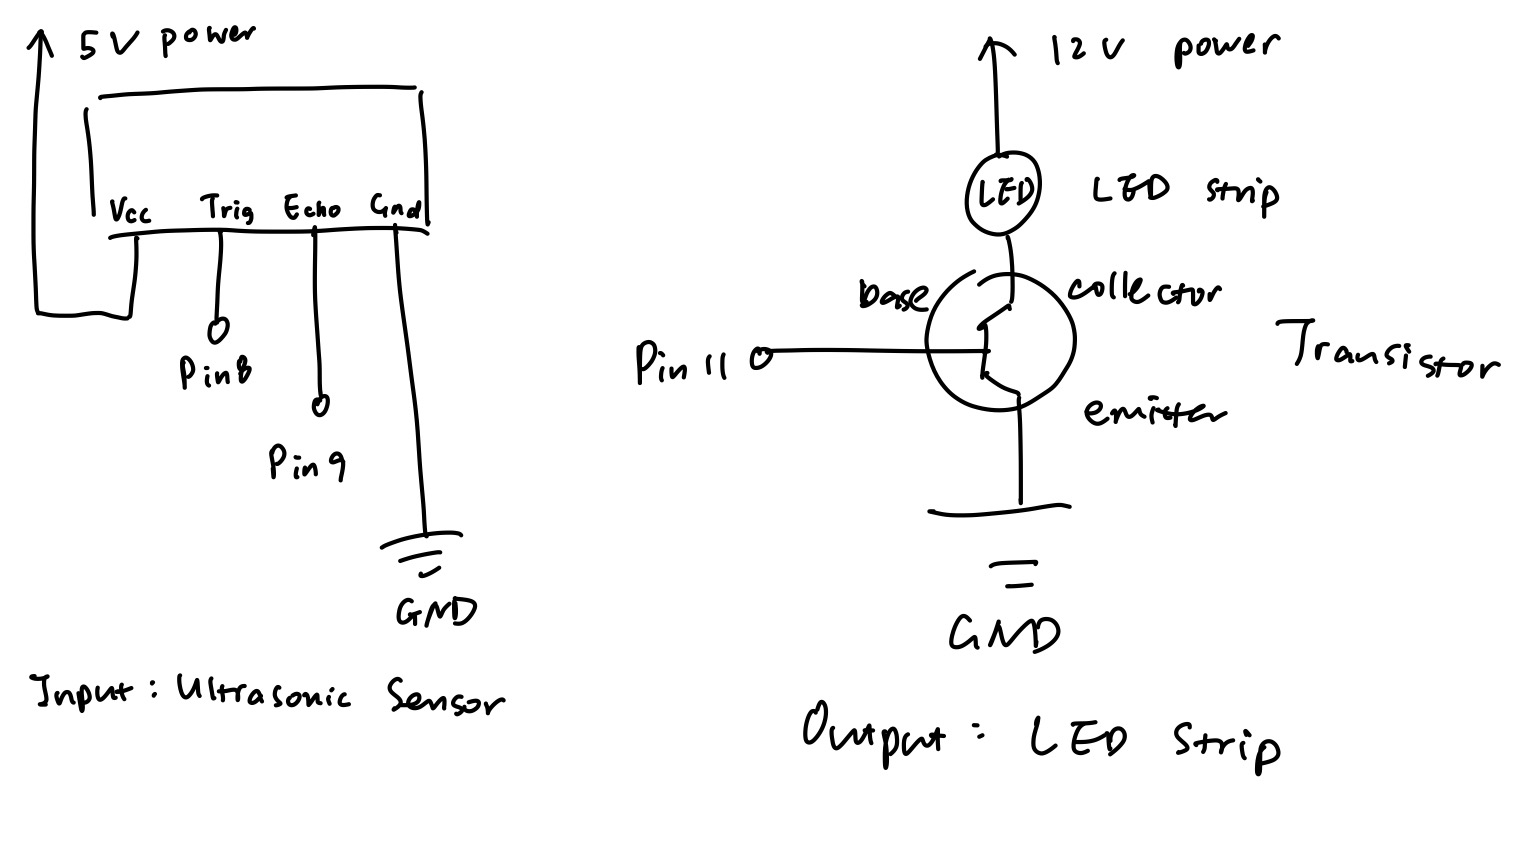 5V power
Vcc Trig Echo Gnd
Pin8
Pin9
GND
Input: Ultrasonic Sensor
12V power
LED LED strip
base collector
Pin 11
Transistor
emitter
GND
Output: LED Strip